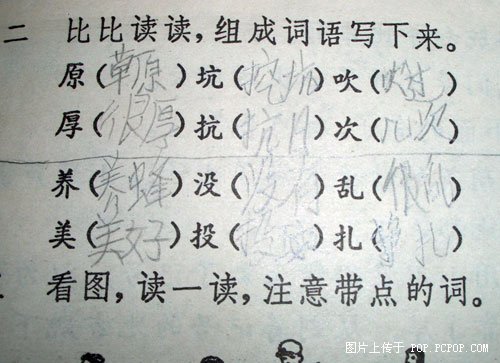 二 比比读读，组成词语写下来。
原（草原）坑（挖坑）吹（吹过）
厚（很厚）抗（抗月）次（几次）
养（养蜂）没（没有）乱（很乱）
美（美好）投（）扎（扎）
看图，读一读，注意带点的词。
图片上传于 POP.PCPOP.com